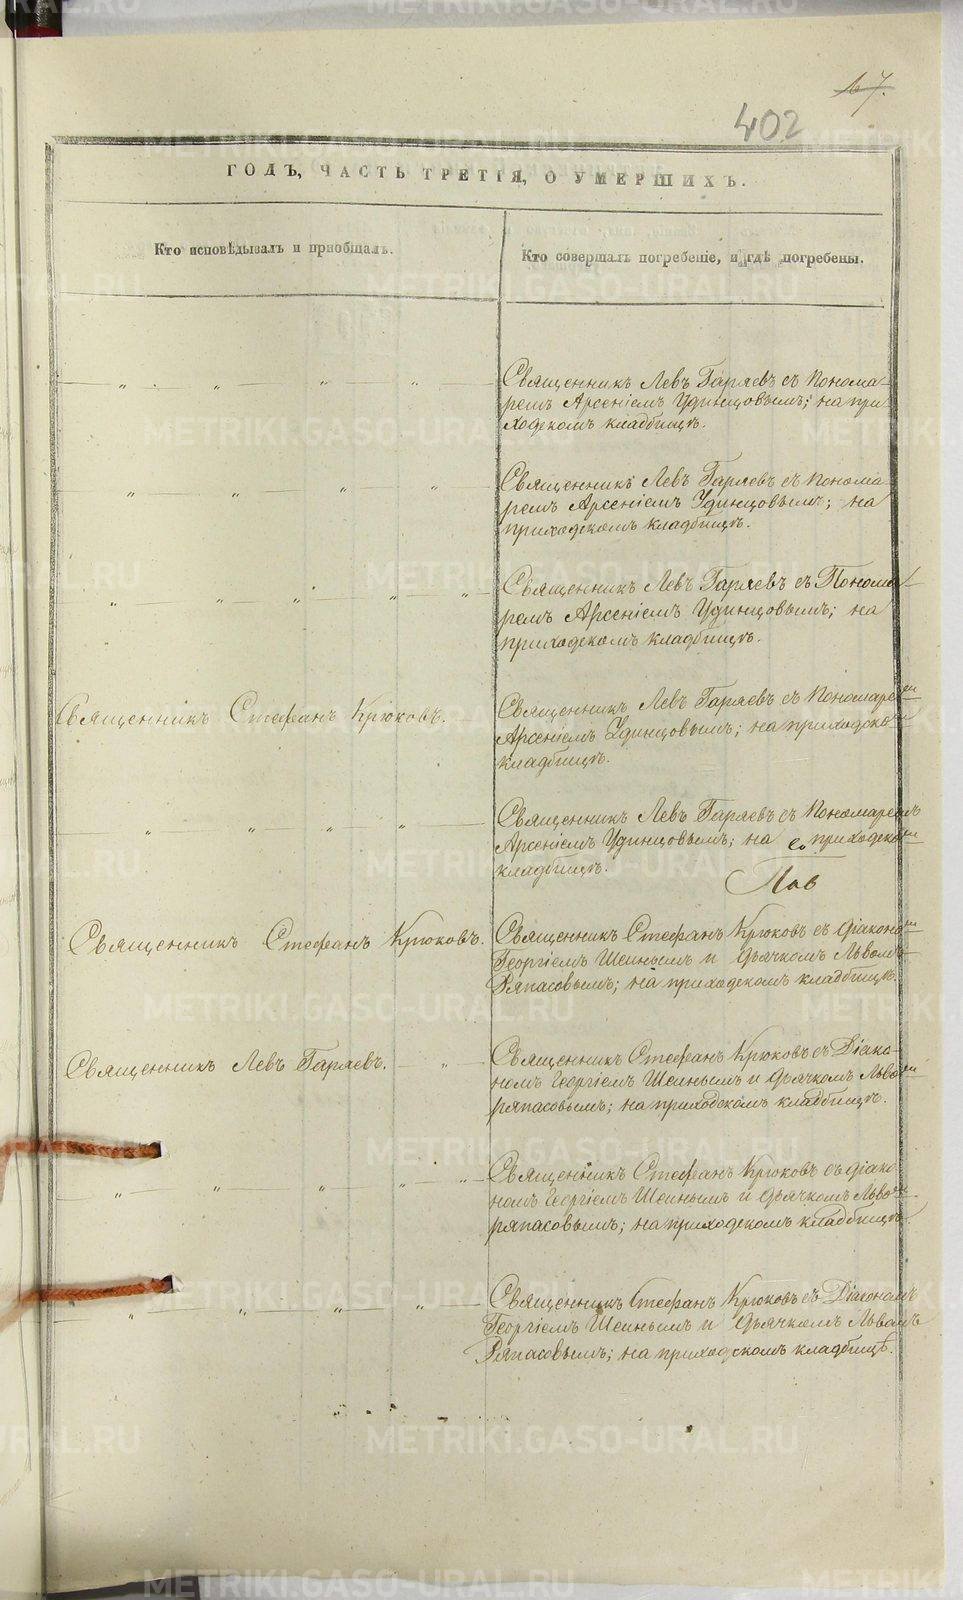 17.
402
ГОДЪ, ЧАСТЬ ТРЕТІЯ, О УМЕРШИХЪ.
Кто исповѣдывалъ и пріобщалъ.
Кто совершалъ погребеніе, и гдѣ погребены.
Священникъ Левъ Гаряевъ съ Понома-
ремъ Арсеніемъ Удинцовымъ; на при-
ходскомъ кладбищѣ.
Священникъ Левъ Гаряевъ съ Понома
ремъ Арсеніемъ Удинцовымъ; на
приходскомъ кладбищѣ.
Священникъ Левъ Гаряевъ съ Понома-
ремъ Арсеніемъ Удинцовымъ; на
приходскомъ кладбищѣ.
Священникъ Стефанъ Крюковъ.
Священникъ Левъ Гаряевъ съ Пономаремъ
Арсеніемъ Удинцовымъ; на приходскомъ
кладбищѣ.
Священникъ Левъ Гаряевъ съ Пономаремъ
Арсеніемъ Удинцовымъ; на приходскомъ
кладбищѣ.
Священникъ Стефанъ Крюковъ.
Священникъ Стефанъ Крюковъ съ діакономъ
Георгіемъ Шеинымъ и дьячкомъ Львомъ
Ряпасовымъ; на приходскомъ кладбищѣ.
Священникъ Левъ Гаряевъ.
Священникъ Стефанъ Крюковъ съ Діако-
номъ Георгіемъ Шеинымъ и дьячкомъ Львомъ
ряпасовымъ; на приходскомъ кладбищѣ.
Священникъ Стефанъ Крюковъ съ діако
номъ Георгіемъ Шеинымъ и дьячкомъ Львомъ
ряпасовымъ; на приходскомъ кладбищѣ.
Священникъ Стефанъ Крюковъ съ Діакономъ
Георгіемъ Шеинымъ и дьячкомъ Львомъ
Ряпасовымъ; на приходскомъ кладбищѣ.
METRIKI.GASO-URAL.RU